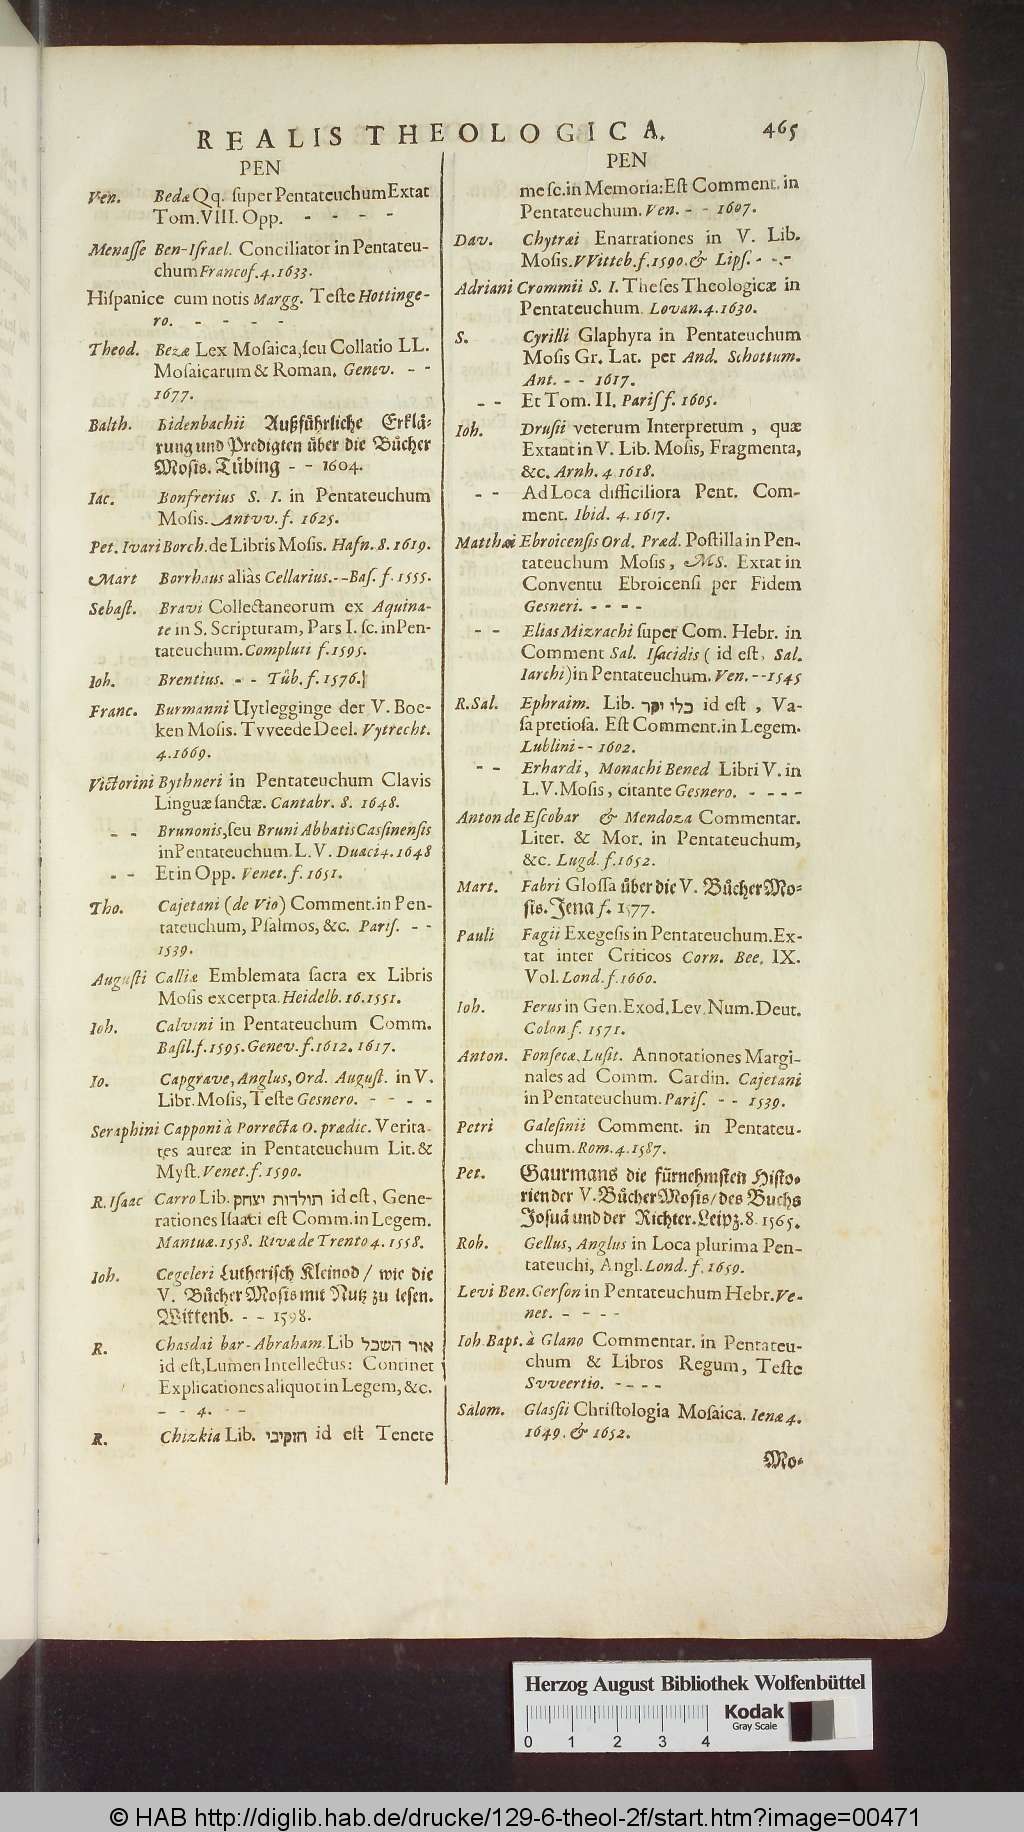 REALIS THEOLOGICA. 465
PEN
Ven. Bedæ Qq. ſuper Pentateuchum Extat
Tom. VIII. Opp. - - - -
Menaſſe Ben-Iſrael. Conciliator in Pentateu-
chum Francof. 4. 1633.
Hiſpanice cum notis Margg. Teſte Hottinge-
ro. - - - -
Theod. Bezæ Lex Moſaica, ſeu Collatio LL.
Moſaicarum & Roman. Genev. - -
1677.
Balth. Bidenbachii Außführliche Erklä-
rung und Predigten über die Bücher
Moſis. Tübing - - 1604.
Iac. Bonfrerius S. I. in Pentateuchum
Moſis. Antvv. f. 1625.
Pet. Ivari Borch. de Libris Moſis. Hafn. 8. 1619.
Mart Borrhaus aliàs Cellarius. - - Baſ. f. 1555.
Sebaſt. Bravi Collectaneorum ex Aquina-
te in S. Scripturam, Pars I. ſc. in Pen-
tateuchum. Compluti f. 1595.
Ioh. Brentius. - - Tüb. f. 1576.
Franc. Burmanni Uytlegginge der V. Boe-
ken Moſis. Tvveede Deel. Vytrecht.
4. 1669.
Victorini Bythneri in Pentateuchum Clavis
Linguæ ſanctæ. Cantabr. 8. 1648.
- - Brunonis, ſeu Bruni Abbatis Casſinenſis
in Pentateuchum. L. V. Duaci 4. 1648
- - Et in Opp. Venet. f. 1651.
Tho. Cajetani (de Vio) Comment. in Pen-
tateuchum, Pſalmos, &c. Pariſ. - -
1539.
Auguſti Calliæ Emblemata ſacra ex Libris
Moſis excerpta. Heidelb. 16. 1551.
Ioh. Calvini in Pentateuchum Comm.
Baſil. f. 1595. Genev. f. 1612. 1617.
Io. Capgrave, Anglus, Ord. Auguſt. in V.
Libr. Moſis, Teſte Gesnero. - - - -
Seraphini Capponi à Porrecta O. prædic. Verita-
tes aureæ in Pentateuchum Lit. &
Myſt. Venet. f. 1590.
R. Iſaac Carro Lib. תולדות יצחק id eſt, Gene-
rationes Iſaaci eſt Comm. in Legem.
Mantuæ. 1558. Rivæ de Trento 4. 1558.
Ioh. Cegeleri Lutheriſch Kleinod / wie die
V. Bücher Moſis mit Nutz zu leſen.
Wittenb. - - 1598.
R. Chasdai bar-Abraham. Lib אור השכל
id eſt, Lumen Intellectus: Continet
Explicationes aliquot in Legem, &c.
- - 4. - -
R. Chizkia Lib. חזקיבי id eſt Tenete
PEN
me ſc. in Memoria: Eſt Comment. in
Pentateuchum. Ven. - - 1607.
Dav. Chytræi Enarrationes in V. Lib.
Moſis. VVitteb. f. 1590. & Lipſ. - - -
Adriani Crommii S. I. Theſes Theologicæ in
Pentateuchum. Lovan. 4. 1630.
S. Cyrilli Glaphyra in Pentateuchum
Moſis Gr. Lat. per And. Schottum.
Ant. - - 1617.
- - Et Tom. II. Pariſ f. 1605.
Ioh. Druſii veterum Interpretum, quæ
Extant in V. Lib. Moſis, Fragmenta,
&c. Arnh. 4 1618.
- - Ad Loca difficiliora Pent. Com-
ment. Ibid. 4. 1617.
Matthæi Ebroicenſis Ord. Præd. Poſtilla in Pen-
tateuchum Moſis, MS. Extat in
Conventu Ebroicenſi per Fidem
Gesneri. - - - -
- - Elias Mizrachi ſuper Com. Hebr. in
Comment Sal. Iſacidis (id eſt, Sal.
Iarchi) in Pentateuchum. Ven. - - 1545
R. Sal. Ephraim. Lib. כלי יקר id eſt, Va-
ſa pretioſa. Eſt Comment. in Legem.
Lublini - - 1602.
- - Erhardi, Monachi Bened Libri V. in
L. V. Moſis, citante Gesnero. - - - -
Anton de Eſcobar & Mendoza Commentar.
Liter. & Mor. in Pentateuchum,
&c. Lugd. f. 1652.
Mart. Fabri Gloſſa über die V. Bücher Mo-
ſis. Jena f. 1577.
Pauli Fagii Exegeſis in Pentateuchum. Ex-
tat inter Criticos Corn. Bee. IX.
Vol. Lond. f. 1660.
Ioh. Ferus in Gen. Exod. Lev. Num. Deut.
Colon f. 1571.
Anton. Fonſecæ, Luſit. Annotationes Margi-
nales ad Comm. Cardin. Cajetani
in Pentateuchum. Pariſ. - - 1539.
Petri Galeſinii Comment. in Pentateu-
chum. Rom. 4. 1587.
Pet. Gaurmans die fürnehmſten Hiſto-
rien der V. Bücher Moſis / des Buchs
Joſuä und der Richter. Leipz. 8. 1565.
Rob. Gellus, Anglus in Loca plurima Pen-
tateuchi, Angl. Lond. f. 1659.
Levi Ben. Gerſon in Pentateuchum Hebr. Ve-
net. - - - -
Ioh. Bapt. à Glano Commentar. in Pentateu-
chum & Libros Regum, Teſte
Svveertio. - - - -
Salom. Glaſſii Chriſtologia Moſaica. Ienæ 4.
1649. & 1652.
Mo-
Herzog August Bibliothek Wolfenbüttel
0 1 2 3 4
Kodak
Gray Scale
© HAB http://diglib.hab.de/drucke/129-6-theol-2f/start.htm?image=00471